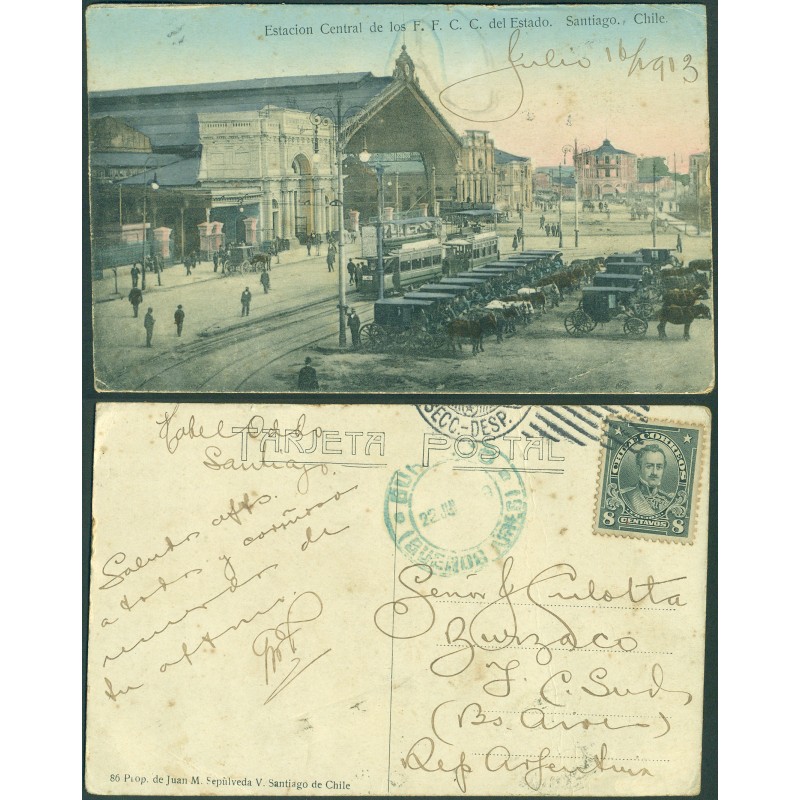 Estacion Central de los F. F. C. C. del Estado. Santiago., Chile.
Julio 16/1913
Hotel Oddo
Santiago.
TARJETA POSTAL
SECC.-DESP.
22 JUL
(BUENOS AIRES)
CHILE CORREOS
8 CENTAVOS 8
Saludo afto.
a todos y cariñoso
recuerdo de
tu affmo.
Señor J. Culotta
Burzaco
F. C. Sud
(Bs. Aires)
Rep Argentina
86 Prop. de Juan M. Sepúlveda V. Santiago de Chile